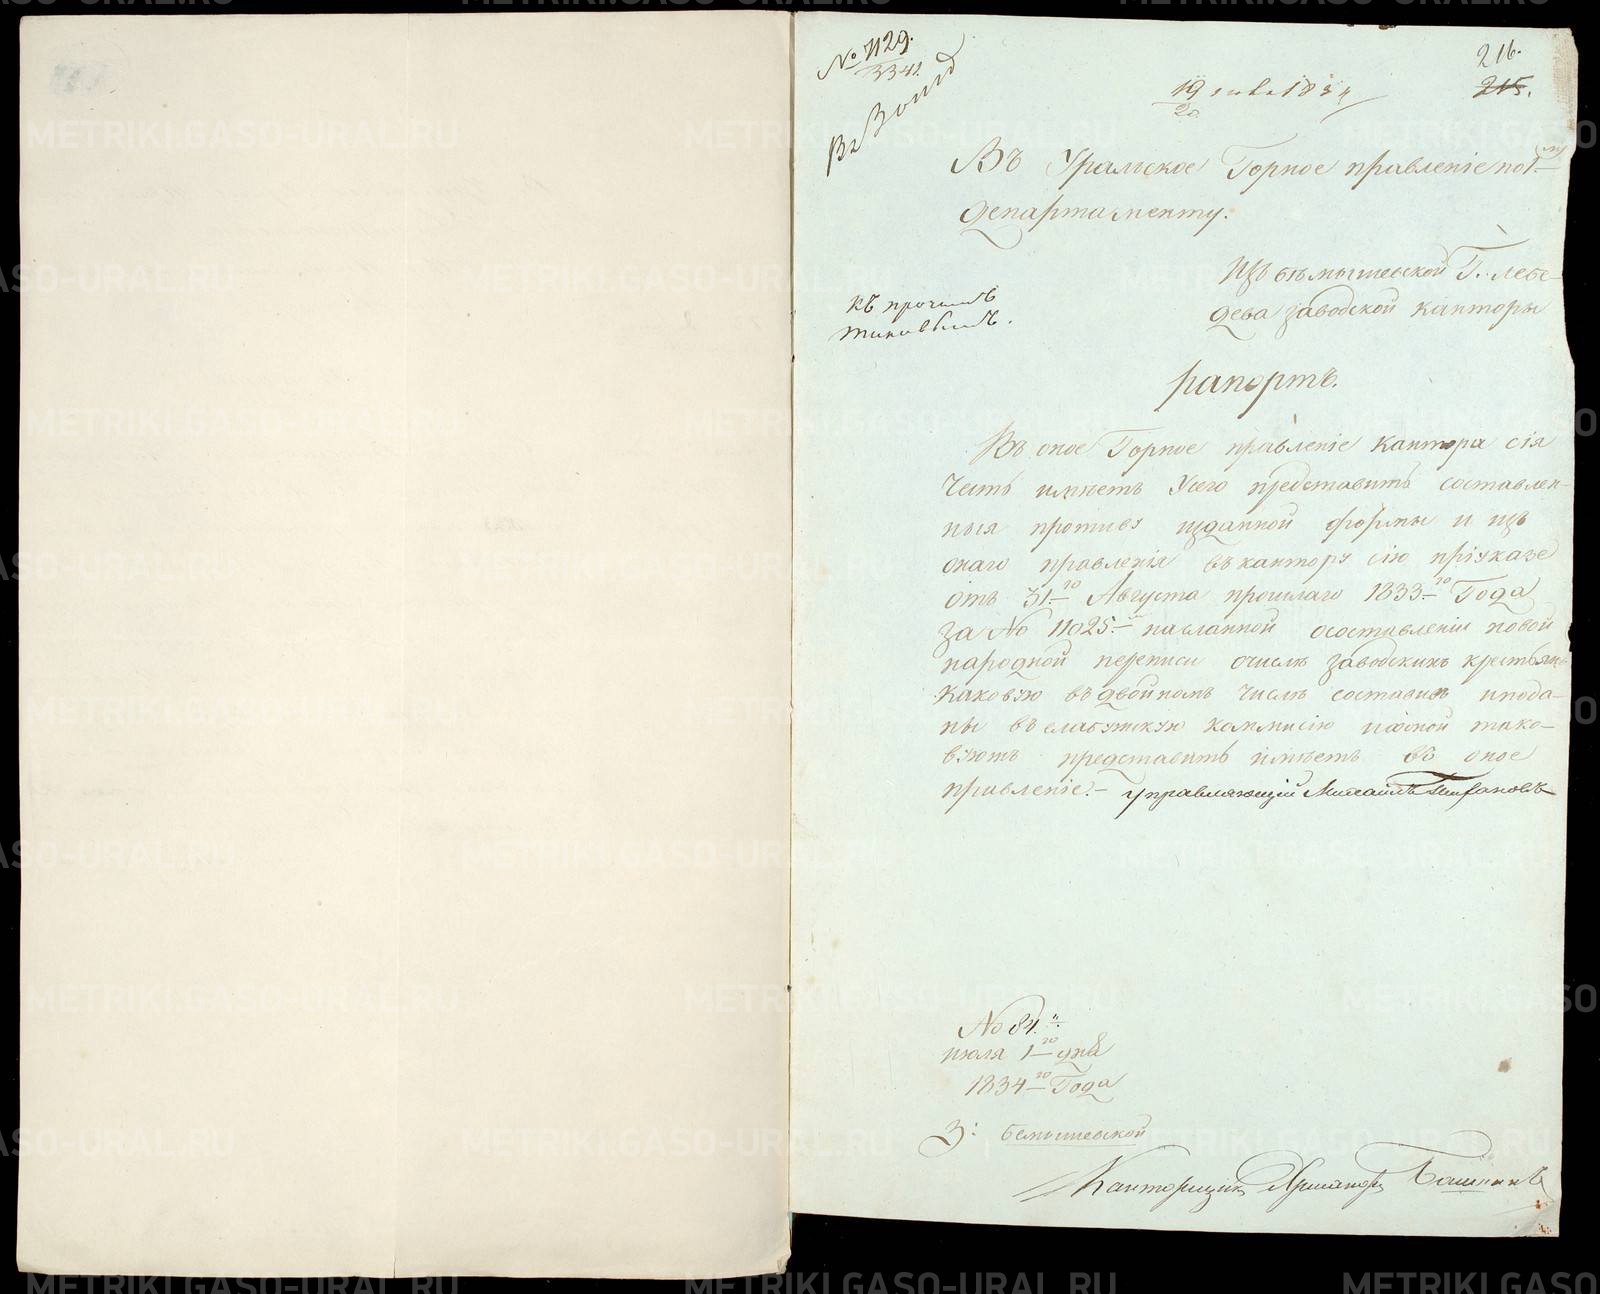 № 7129.
3341.
216.
215.
19
20
Въ Уральское Горное правленіе по 1.му
департаменту.
Изъ бѣмышевской Г. лебе-
дева заводской канторы
къ прочимъ
таковымъ.
рапортъ.
Въ оное Горное правленіе кантора сія
честь имѣетъ Усего представить составлен-
ныя противу изданной формы и изъ
онаго правленія въ кантору сію приуказе
отъ 31.го Августа прошлаго 1833.го Года
за № 11025.й насланной осоставленіи новой
народной переписи очислѣ заводскихъ крестьянъ
каковую въ двойномъ числѣ составивъ ипода-
ны въ елабужкую коммисію тако-
вуютъ представить имѣетъ въ оное
правленіе.- управляющій Михаилъ
№ 84.
июля 1го дня
1834го Года
З: бемышевской
Канторщикъ
METRIKI.GASO-URAL.RU